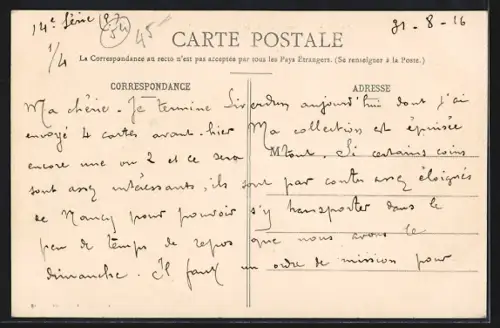 14e Série 27
1/4
54
45-
31-8-16
CARTE POSTALE
La Correspondance au recto n'est pas acceptée par tous les Pays Étrangers. (Se renseigner à la Poste.)
CORRESPONDANCE
ADRESSE
Ma chérie. Je termine Liverdun aujourd'hui dont j'ai
envoyé 4 cartes avant-hier Ma collection est épuisée
encore une ou 2 et ce sera tout. Si certains coins
sont assez intéressants, ils sont par contre assez éloignés
de Nancy pour pouvoir s'y transporter dans le
peu de temps de repos que nous avons le
dimanche. Il faut un ordre de mission pour